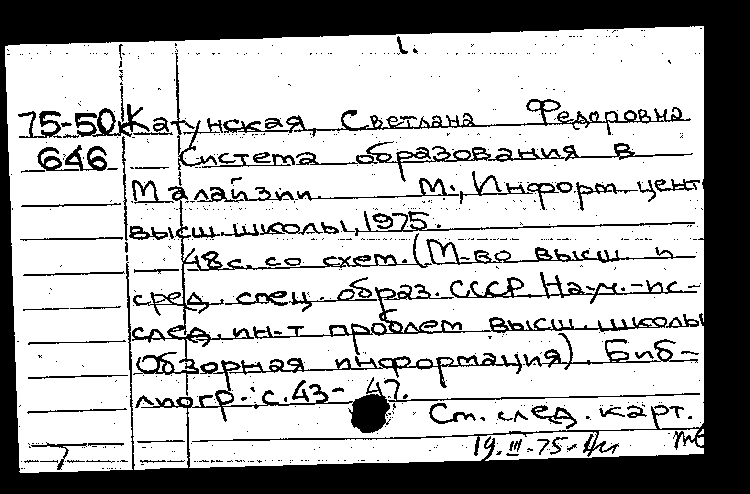 1.
75-50к Катунская, Светлана Федоровна
646 Система образования в
Малайзии. М., Информ. цент
высш. школы, 1975.
48 с. со схем. (М-во высш. и
сред. спец. образ. СССР. Науч.-ис-
след. ин-т проблем высш. школы
Обзорная информация). Биб-
лиогр.: с. 43-47.
См. след. карт.
19.III-75-